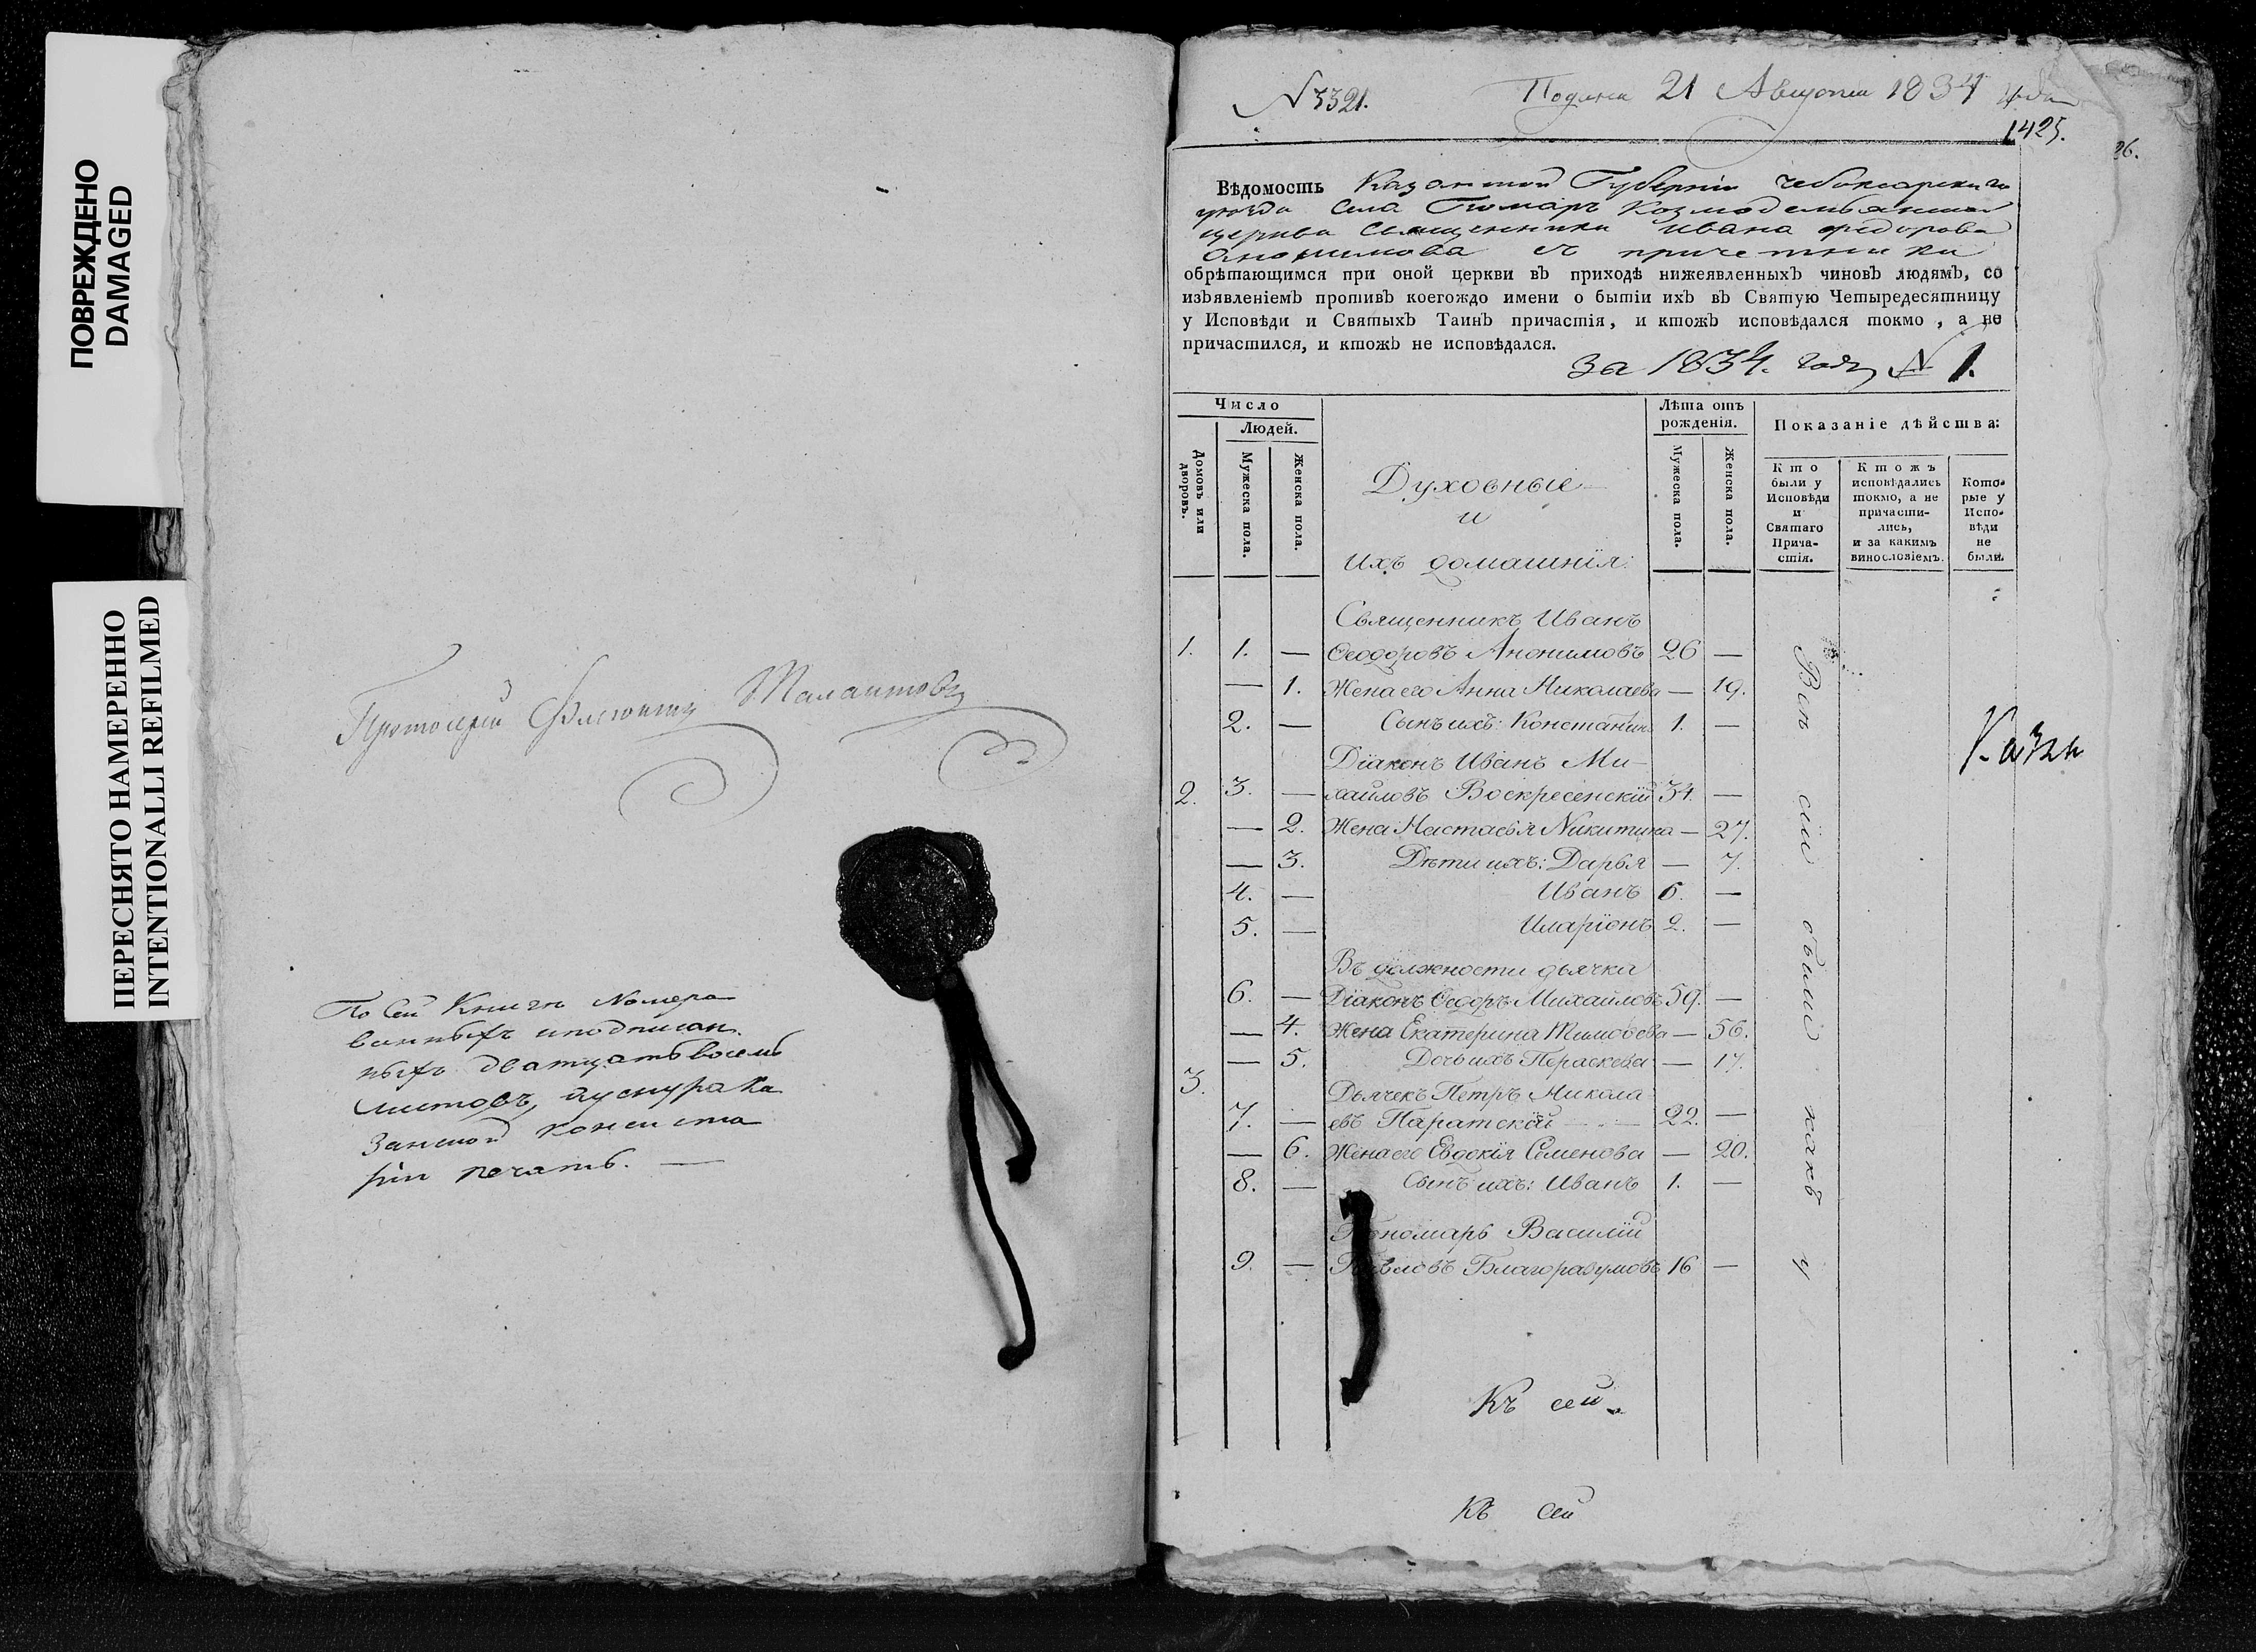 ПОВРЕЖДЕНО
DAMAGED
ПЕРЕСНЯТО НАМЕРЕННО
INTENTIONALLI REFILMED
Протоіерей Талантовъ
По сей Книгѣ Номеро
ванныхъ и подписан
ныхъ дватцать восемь
листовъ, и у снура Ка
занской консисто
ріи печать. —
N 3321.
Подана 21 Августа 1834 года
1425.
26.
Вѣдомость Казанской Губерніи Чебоксарскаго
уѣзда Села Козмодемьянской
церкви Священника Ивана Федорова
Анонимова съ причетники
обрѣтающимся при оной церкви въ приходѣ нижеявленныхъ чиновъ людямъ, со
изъявленіемъ противъ коегождо имени о бытіи ихъ въ Святую Четыредесятницу
у Исповѣди и Святыхъ Таинъ причастія, и ктожъ исповѣдался токмо, а не
причастился, и ктожъ не исповѣдался.
за 1834. годъ N 1.
Число
Людей.
Домовъ или дворовъ.
Мужеска пола.
Женска пола.
Духовные
и
ихъ домашнія:
Лѣта отъ
рожденія.
Мужеска пола.
Женска пола.
Показаніе дѣйства:
Кто
были у
Исповѣди
и
Святаго
Прича-
стія.
Ктожъ
исповѣдались
токмо, а не
причасти-
лись,
и за какимъ
винословіемъ.
Кото-
рые у
Испо-
вѣди
не
были.
Священникъ Иванъ
1. 1. — Ѳеодоровъ Анонимовъ 26 —
— 1. Жена его Анна Николаева — 19.
2. — Сынъ ихъ: Константинъ 1. —
Діаконъ Иванъ Ми-
2. 3. — хайловъ Воскресенскій 34. —
— 2. Жена Настасья Никитина — 27.
— 3. Дѣти ихъ: Дарья — 7.
4. — Иванъ 6. —
5. — Иларіонъ 2. —
Въ должности дьячка
6. — Діаконъ Ѳедоръ Михайловъ 59. —
— 4. Жена Екатерина Тимоѳеева — 56.
— 5. Дочь ихъ Параскева — 17.
3. Дьячекъ Петръ Никола
7. — евъ Паратскій — 22. —
— 6. Жена его Евдокія Семенова — 20.
8. — Сынъ ихъ: Иванъ 1. —
Пономарь Василій
9. — Павловъ Благоразумовъ 16 —
Всѣ сіи были какъ у
Каза
Къ сей
Къ сей